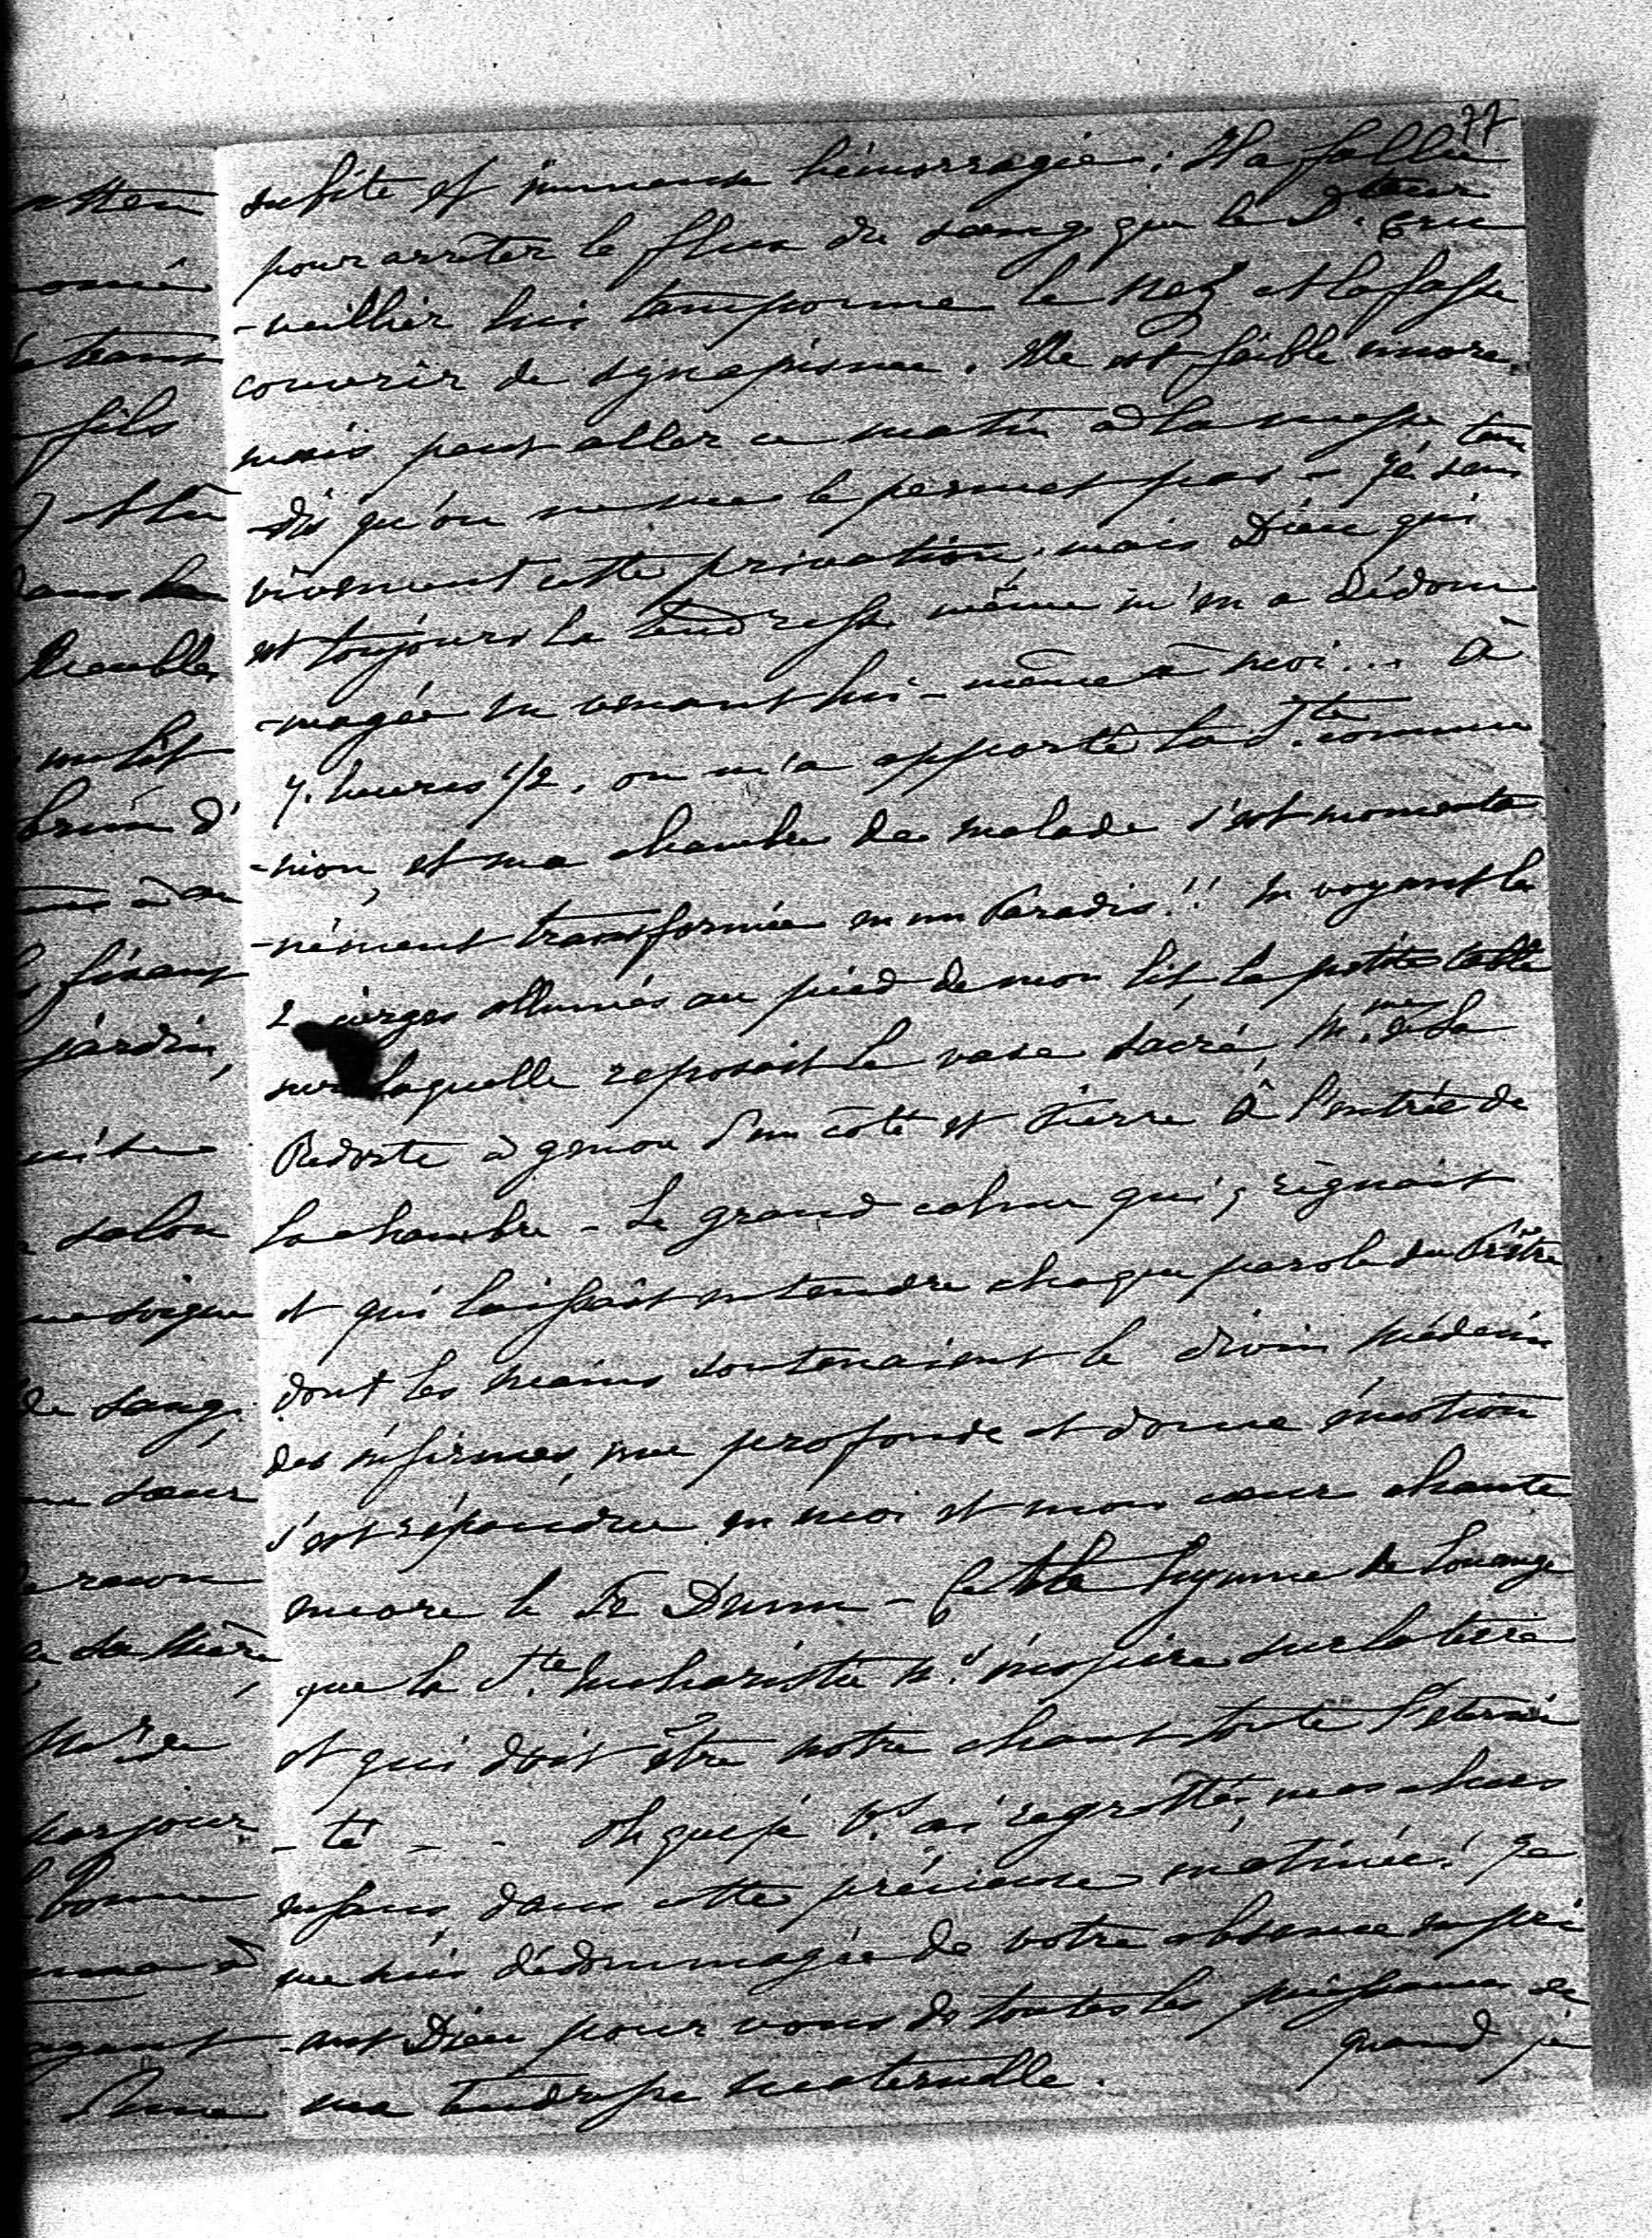 77
subite et immense hémorragie. Il a fallu
pour arrêter le flux du sang que le D.teur Cru
-veilhier lui tamponne le nez et la fasse
couvrir de synapismes. Elle est faible encore,
mais peut aller ce matin à la messe tan
-dis qu'on ne me le permet pas - Je sens
vivement cette privation, mais Dieu qui
est toujours la tendresse même m'en a dédom
-magée en venant lui-même à moi... à
7. heures 1/2, on m'a apporté la S.te commu
-nion, et ma chambre de malade s'est momenta
-nément transformée en un Paradis!! En voyant les
2 cierges allumés au pied de mon lit, la petite table
sur laquelle reposait le vase sacré, M.me de La
Redorte à genou d'un côté et Pierre à l'entrée de
la chambre - Le grand calme qui y règnait
et qui laissait entendre chaque parole du Prêtre
dont les mains soutenaient le divin médecin
des infirmes, une profonde et douce émotion
s'est répandue en moi et mon cœur chante
encore le Te Deum - Cette hymne de louange
que la S.te Eucharistie n.s inspire sur la terre
et qui doit être notre chant toute l'éterni
-té - - Oh que je v.s ai regrettés, mes chers
enfans, dans cette précieuse matinée! Je
me suis dédommagée de votre absence en pri
-ant Dieu pour vous de toutes les puissances de
ma tendresse maternelle. quand je
atten
fils
dans la
trembler
brun d'
jardin,
salon
me soigne
de sang,
sœur
racon
de sa Mère,
par jour
bonne
d'une